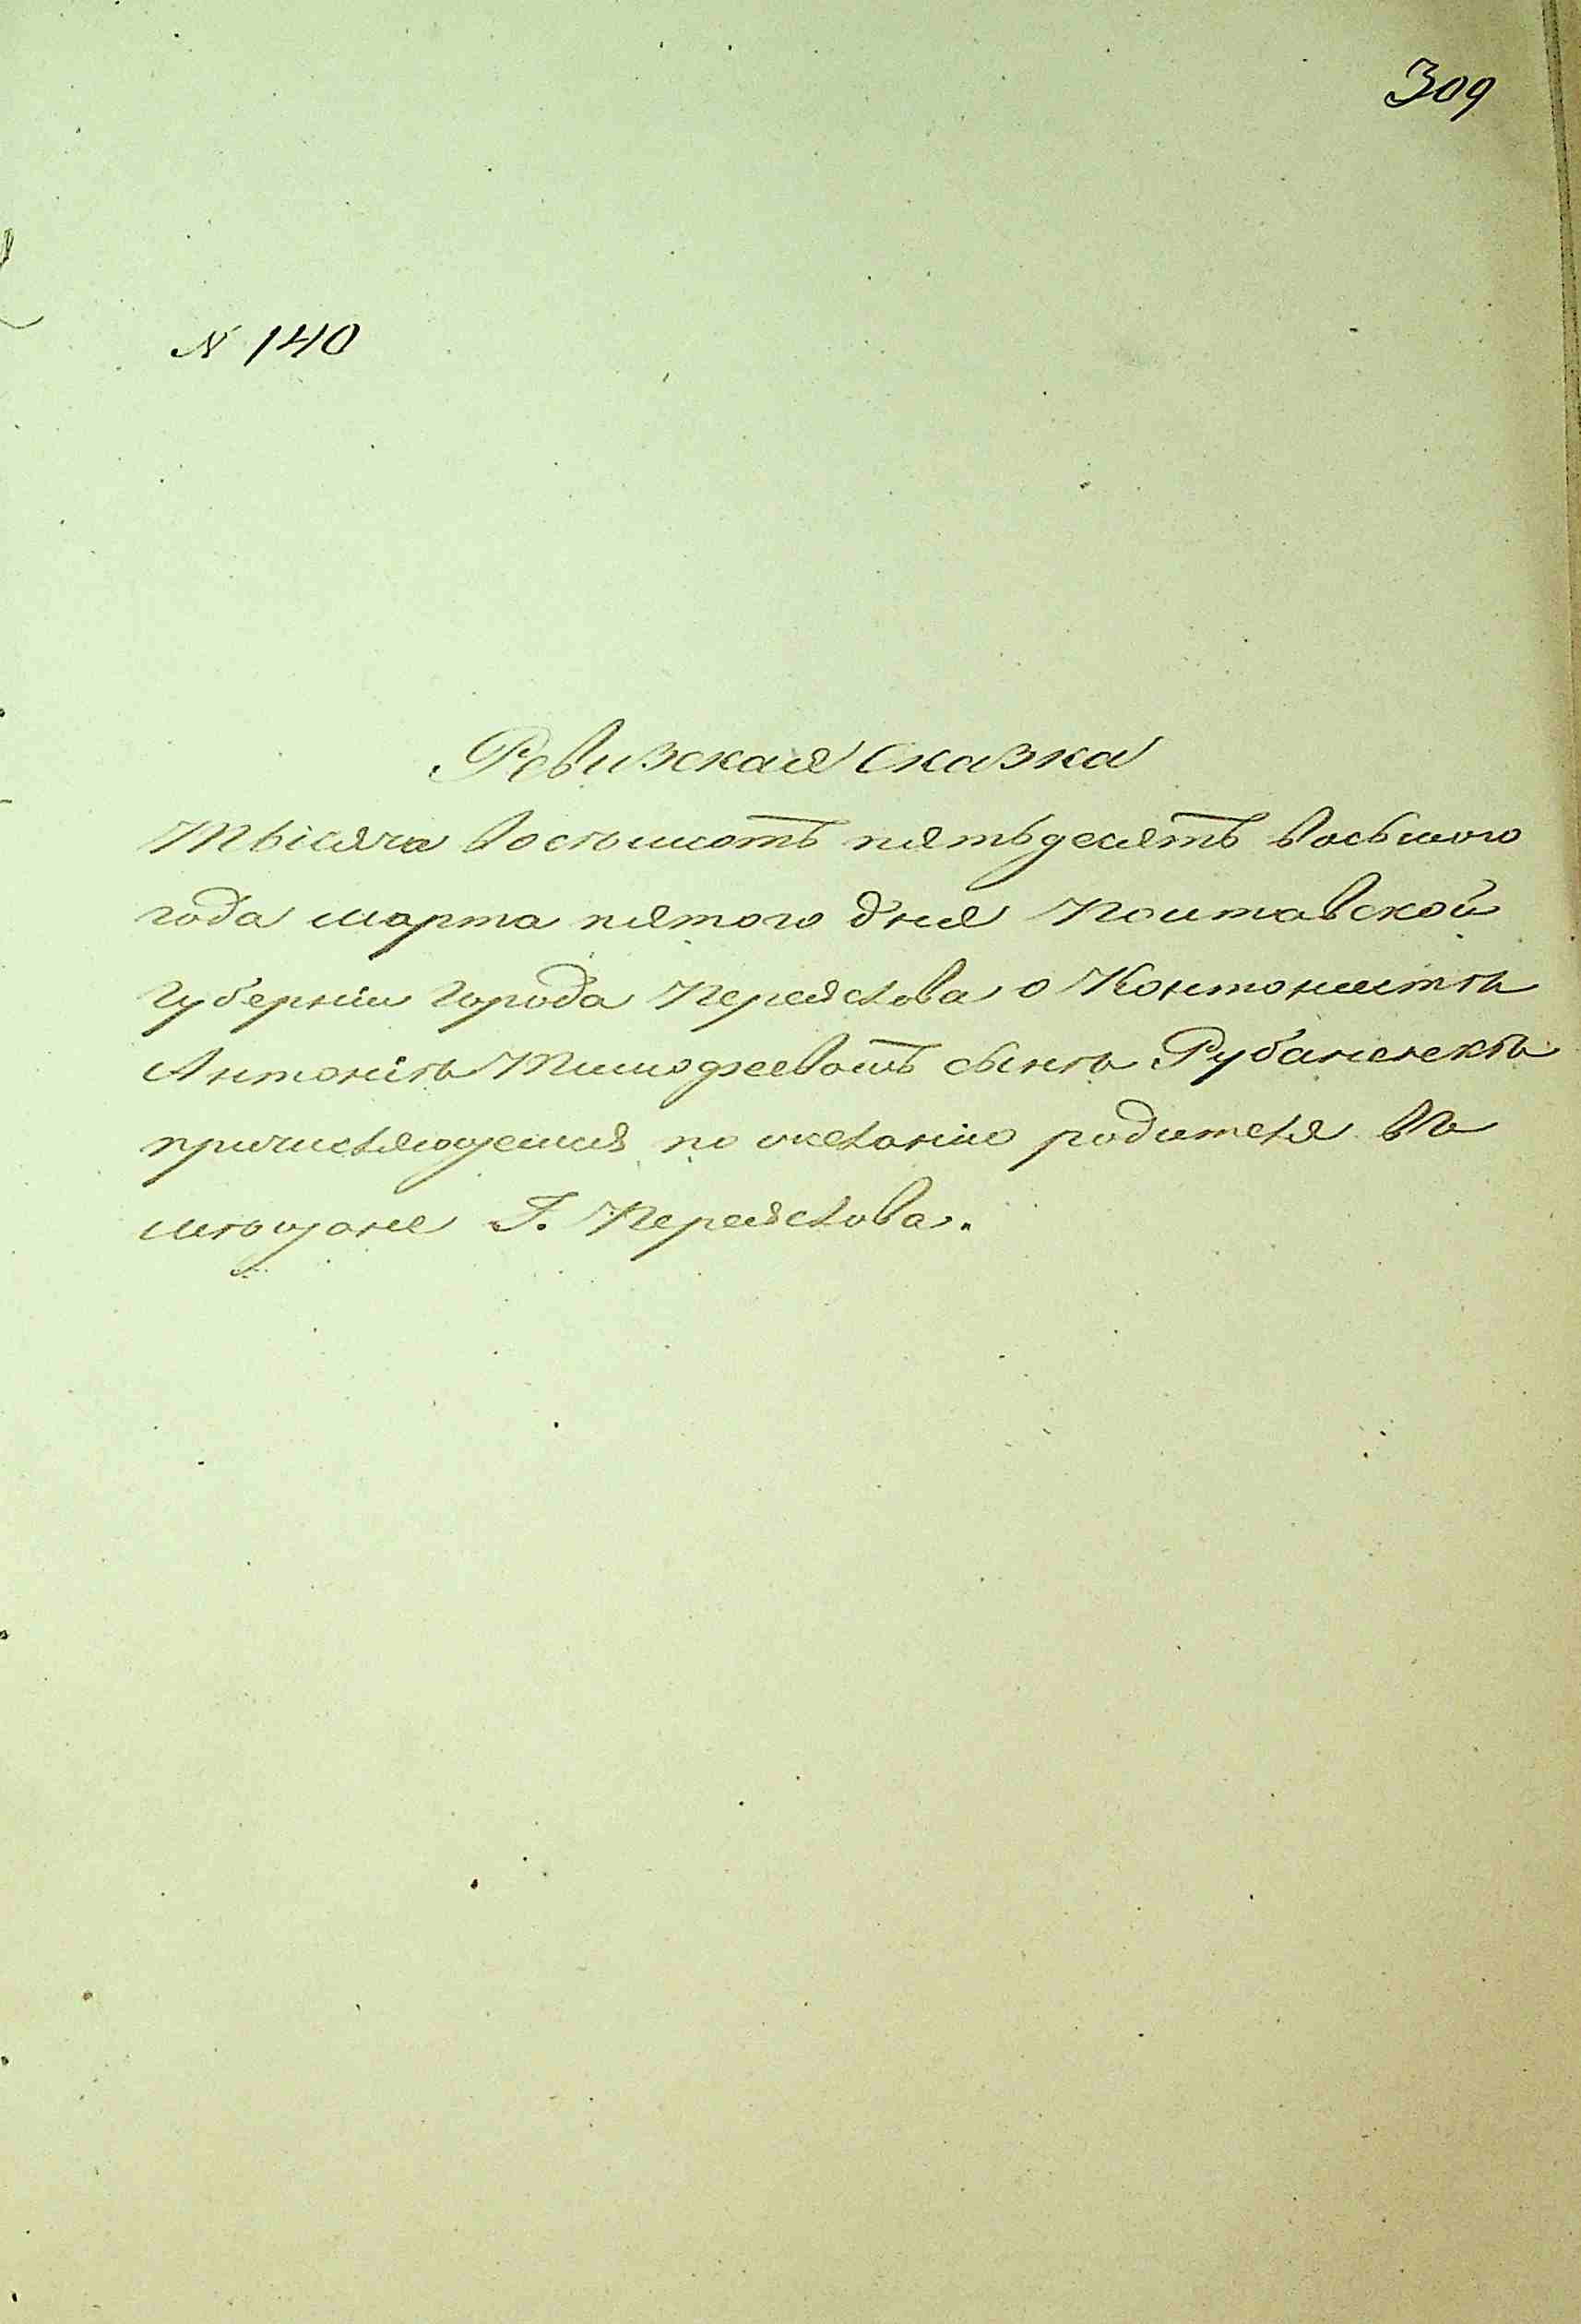 309
№ 140
Ревизская сказка
Тысяча восъмисотъ пятьдесятъ восьмого
года марта пятого дня Полтавской
губернии города Переяслова о Контонисте
Антонѣ Тимофеевомъ сынѣ Рубаненкѣ
причисляющемся по желанию родителя въ
мѣщане Г. Переяслова.